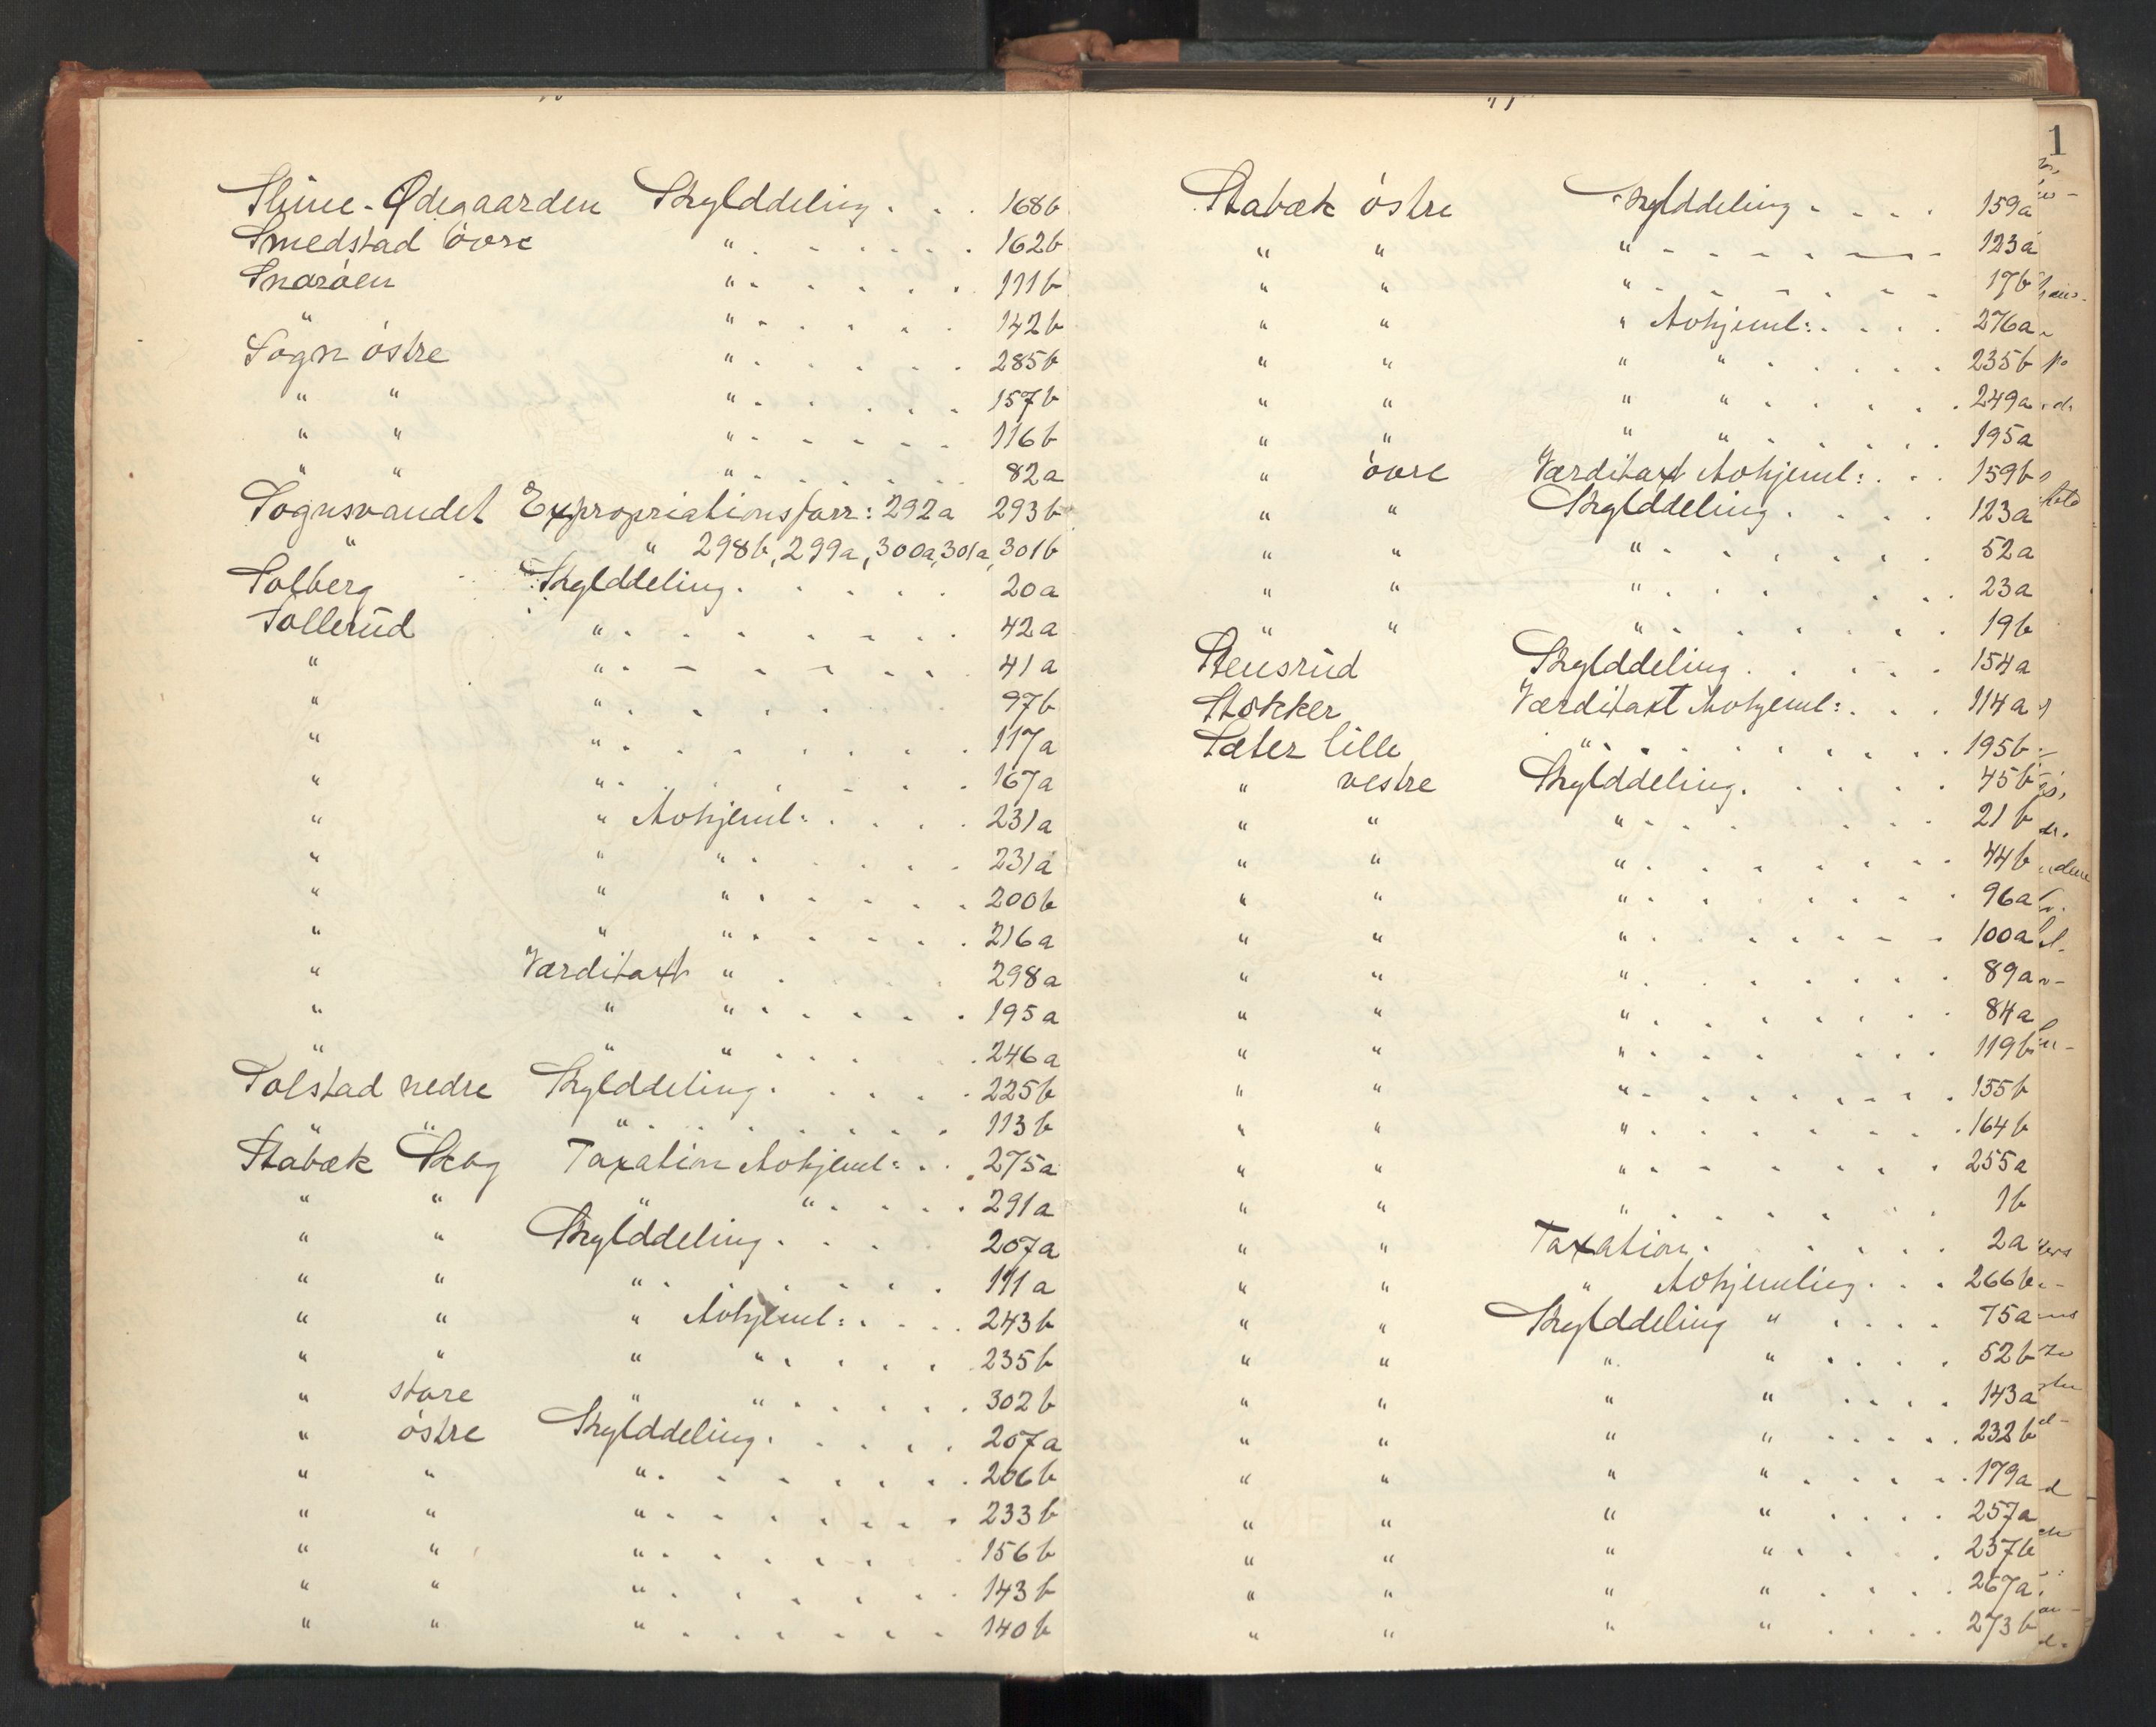 Slime-Ødegaarden Skylddeling . . . 168b
Smedstad övre " . . . . . 162b
Snaröen " . . . . . . 111b
" " . . . . . 142b
Sogn östre " . . . . . 285b
" " " . . . . . . 157b
" " " . . . . . . 116b
" " " . . . . . . 82a
Sognsvandet Expropriationsforr: 292a 293b
" " 298b, 299a, 300a, 301a, 301b
Solberg Skylddeling . . . . . . 20a
Sollerud " . . . . . . . 42a
" " . . . . . . . 41a
" " . . . . . . 97b
" " . . . . . . . . 117a
" " . . . . . . . 167a
" " Aohjeml: . . . . 231a
" " " . . . . . 231a
" " " . . . . . . 200b
" " " . . . . . 216a
" Værditaxt " . . 298a
" " " . . . . . . 195a
" " " . . . . . 246a
Solstad nedre Skylddeling . . . . . 225b
" " " . . . . . . . . 113b
Stabæk Skog Taxation Aohjeml: . . 275a
" " " " . . . . . 291a
" " Skylddeling . . . . 207a
" " " . . . . . . . 111a
" " " Aohjeml: . . . . 243b
" " " " . . . . . 235b
" store " " . . . . . . 302b
" östre Skylddeling . . . . . 207a
" " " . . . . . . . 206b
" " " . . . . . . . . 233b
" " " . . . . . . 156b
" " " . . . . . . . 143b
" " " . . . . . . . 140b
1
Stabæk östre Skylddeling . . . . 159a
" " " . . . . . . . 123a
" " " . . . . . . . 17b
" " " Aohjeml: . . . . 276a
" " " " . . . . . . 235b
" " " " . . . . . . 249a
" " " " . . . . . . 195a
" övre Værditaxt Aohjeml: . . . 159b
" " Skylddeling . . . . 123a
" " " . . . . . . . 52a
" " " . . . . . . 23a
" " " . . . . . . . 19b
Stensrud Skylddeling . . . . . 154a
Stokker Værditaxt Aohjeml: . . . 114a
Sæter lille " . . . . . . . . . 195b
" vestre Skylddeling . . . . . 45b
" " " . . . . . . 21b
" " " . . . . . . . . 44b
" " " . . . . . . . 96a
" " " . . . . . . . 100a
" " " . . . . . . . 89a
" " " . . . . . . . 84a
" " " . . . . . . 119b
" " " . . . . . . . . 155b
" " " . . . . . . . . 164b
" " " . . . . . . . 255a
" " " . . . . . . 1b
" " Taxation . . . . . 2a
" " " Aohjemling . . . 266b
" " Skylddeling " . . . . 75a
" " " " . . . . 52b
" " " " . . . . 143a
" " " " . . . . . 232b
" " " " . . . . . 179a
" " " " . . . . 257a
" " " " . . . . 257b
" " " " . . . . 267a
" " " " . . . . 273b